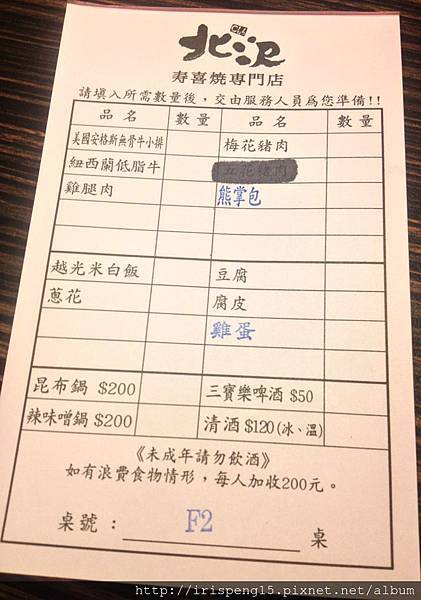 北澤
CLA
寿喜燒専門店
請填入所需數量後，交由服務人員為您準備!!
品名 數量 品名 數量
美國安格斯無骨牛小排 梅花豬肉
紐西蘭低脂牛 五花豬肉
雞腿肉 熊掌包
越光米白飯 豆腐
蔥花 腐皮
雞蛋
昆布鍋 $200 三寶樂啤酒 $50
辣味噌鍋 $200 清酒 $120(冰、溫)
《未成年請勿飲酒》
如有浪費食物情形，每人加收200元。
桌號： F2 桌
http://irispeng15.pixnet.net/album